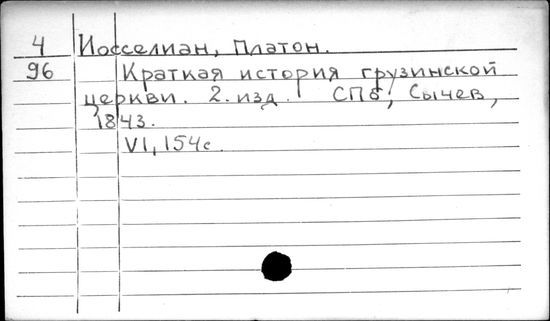 4 Иосселиан, Платон.
96 Краткая история грузинской
церкви. 2. изд. СПб, Сычев,
1843.
VI, 154с.